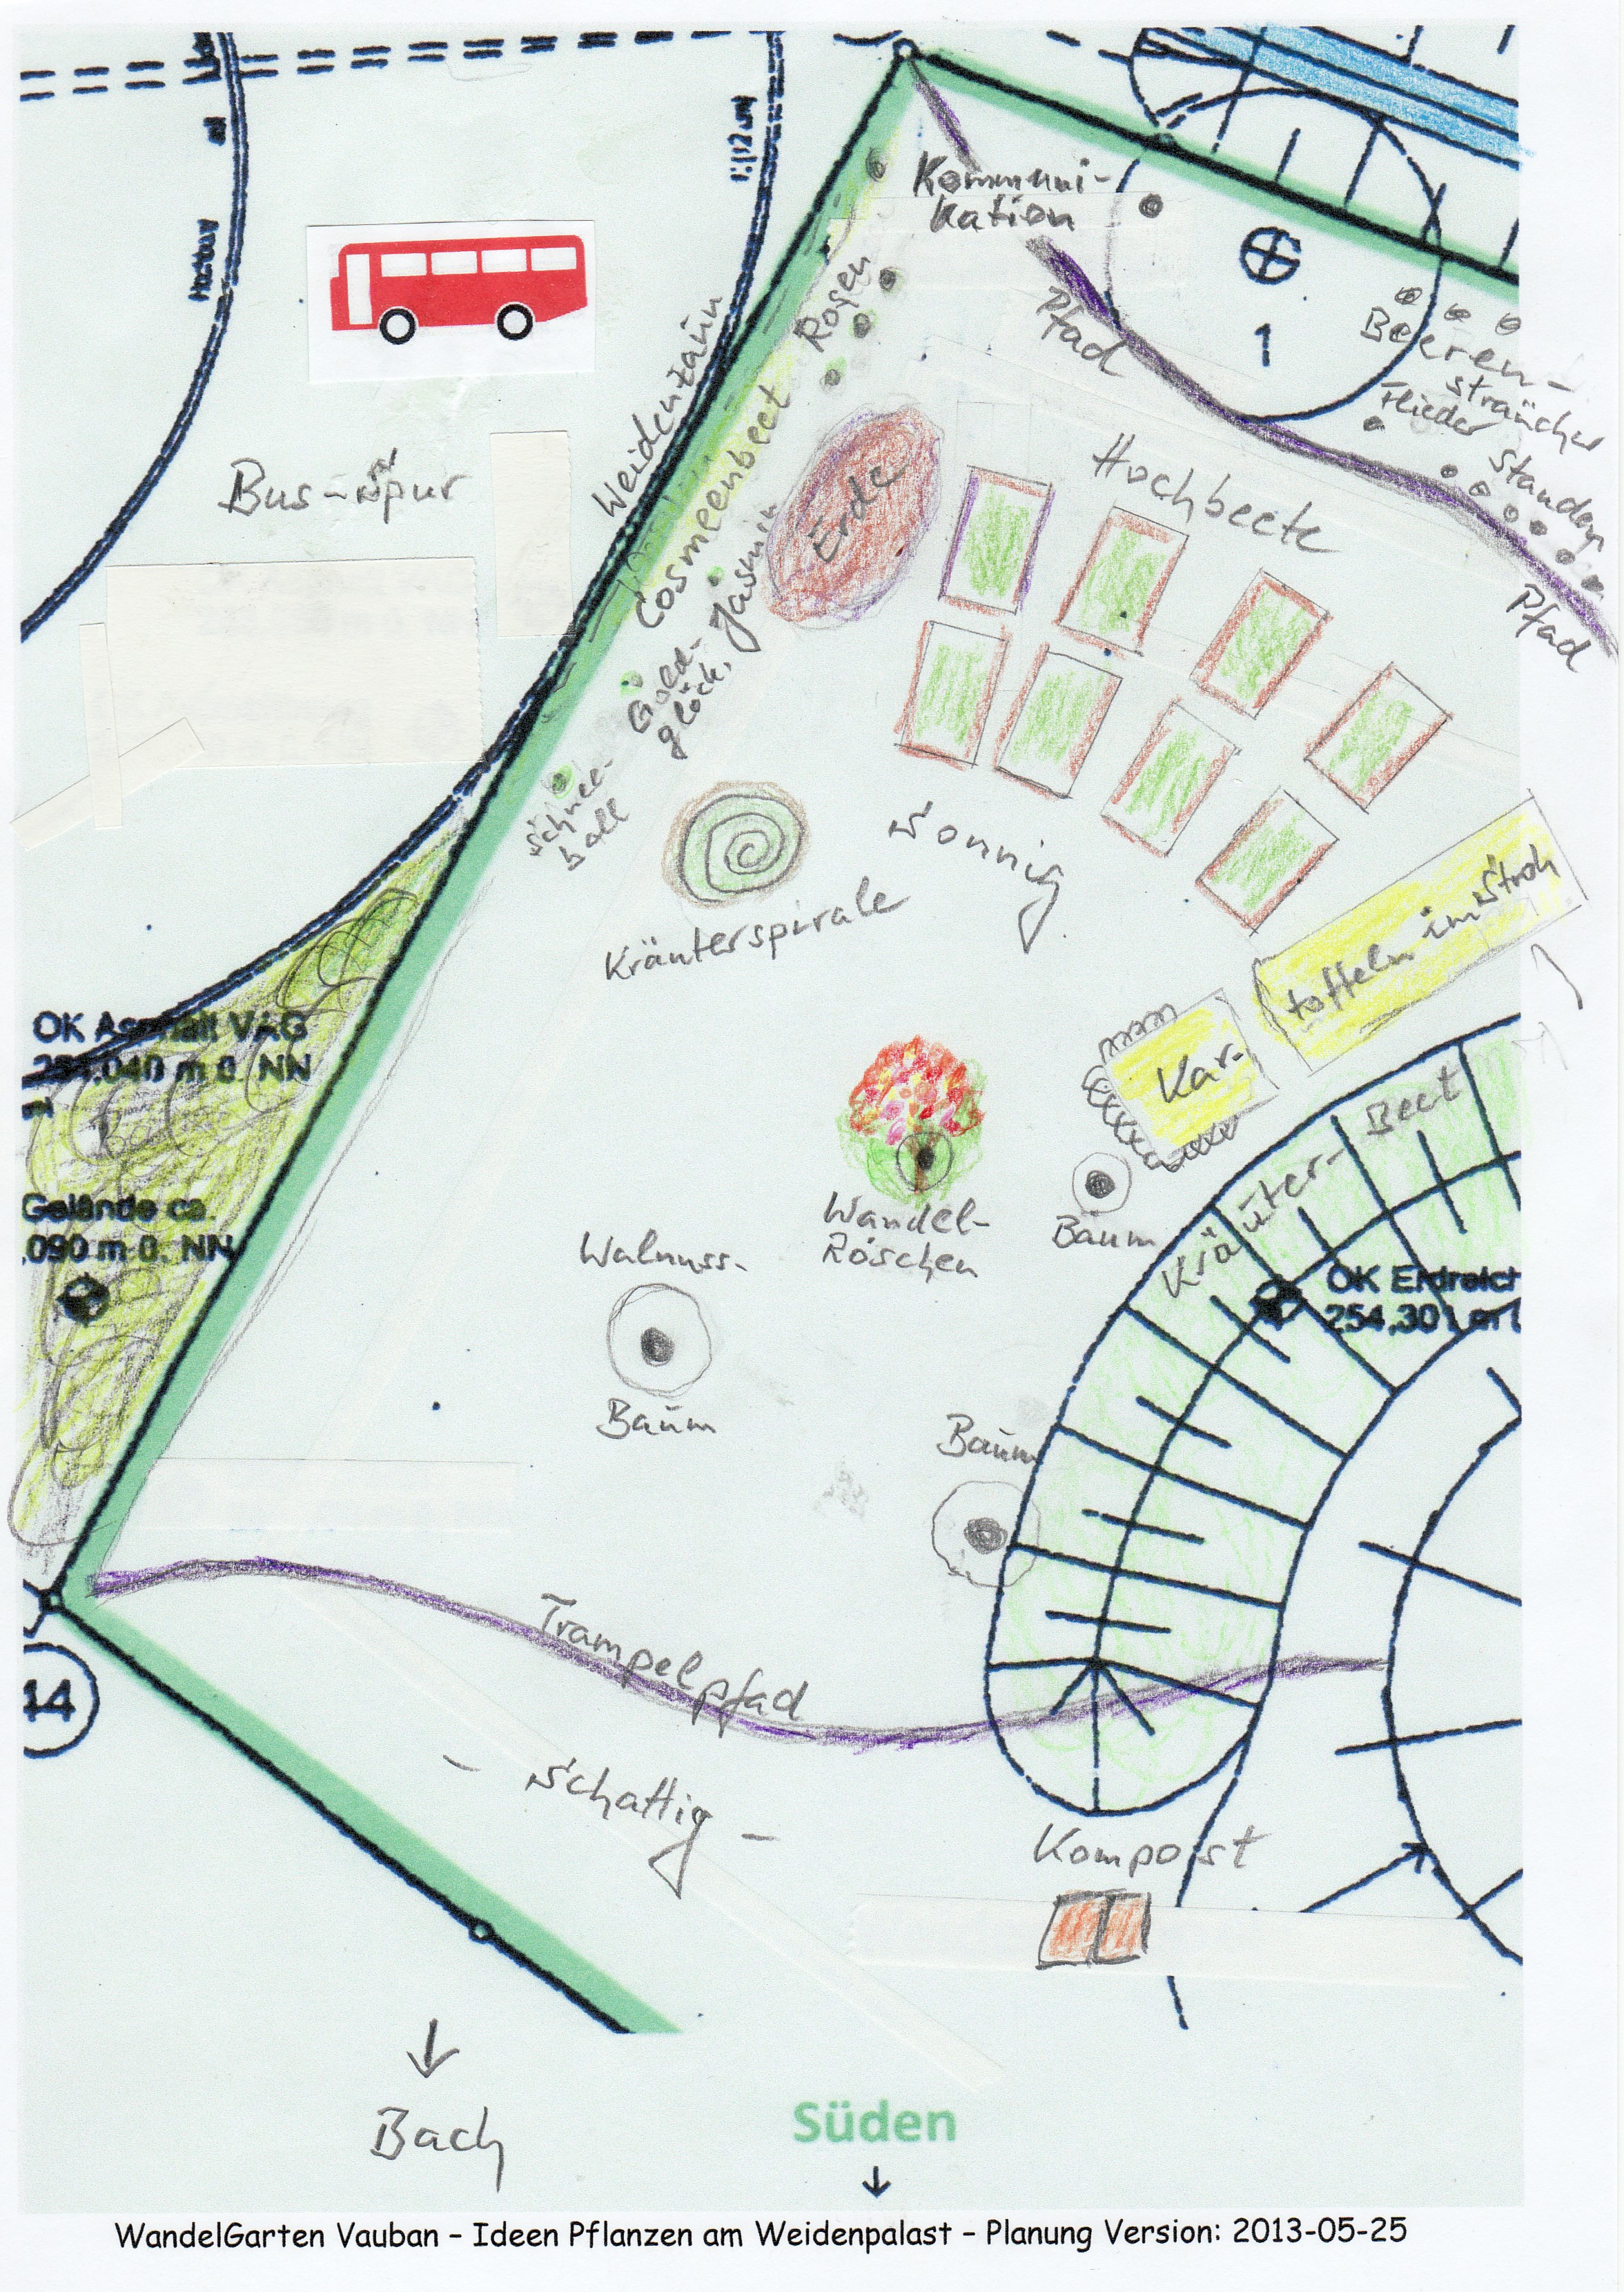 Kommuni-
kation
Pfad
1
Beeren-
sträucher
Flieder
Stauden
Pfad
Rosen
Weidenzaun
Cosmeenbeet
Jasmin
Gold-
glöck.
Schnee-
ball
Erde
Hochbeete
Bus-Spur
Sonnig
Kräuterspirale
Kar-
toffeln im Stroh
OK Asphalt VAG
254,040 m ü. NN
Gelände ca.
.090 m ü. NN
Wandel-
Röschen
Baum
Kräuter-
Beet
OK Erdreich
Walnuss-
Baum
Baum
Trampelpfad
44
- Schattig -
Kompost
Bach
Süden
WandelGarten Vauban – Ideen Pflanzen am Weidenpalast – Planung Version: 2013-05-25